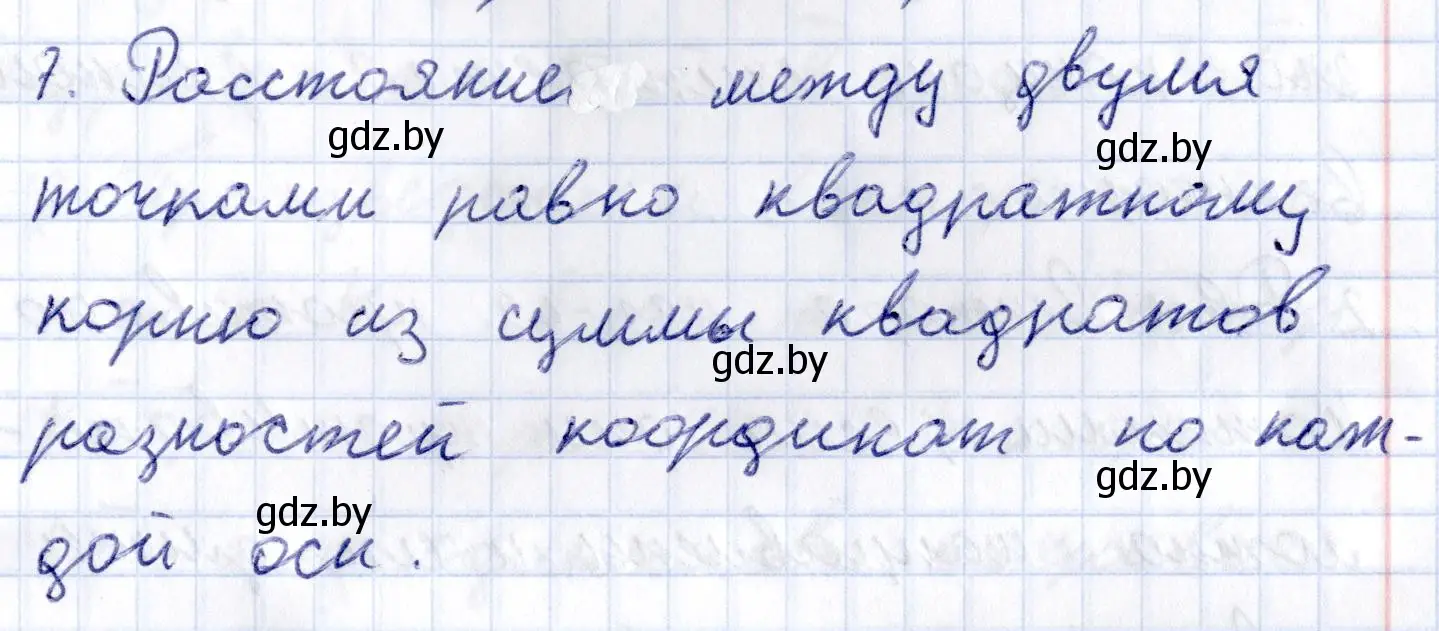 7. Расстояние между двумя
gdz.by gdz.by
точками равно квадратному
корню из суммы квадратов
gdz.by
разностей координат по каж-
gdz.by
gdz.by
дой оси.